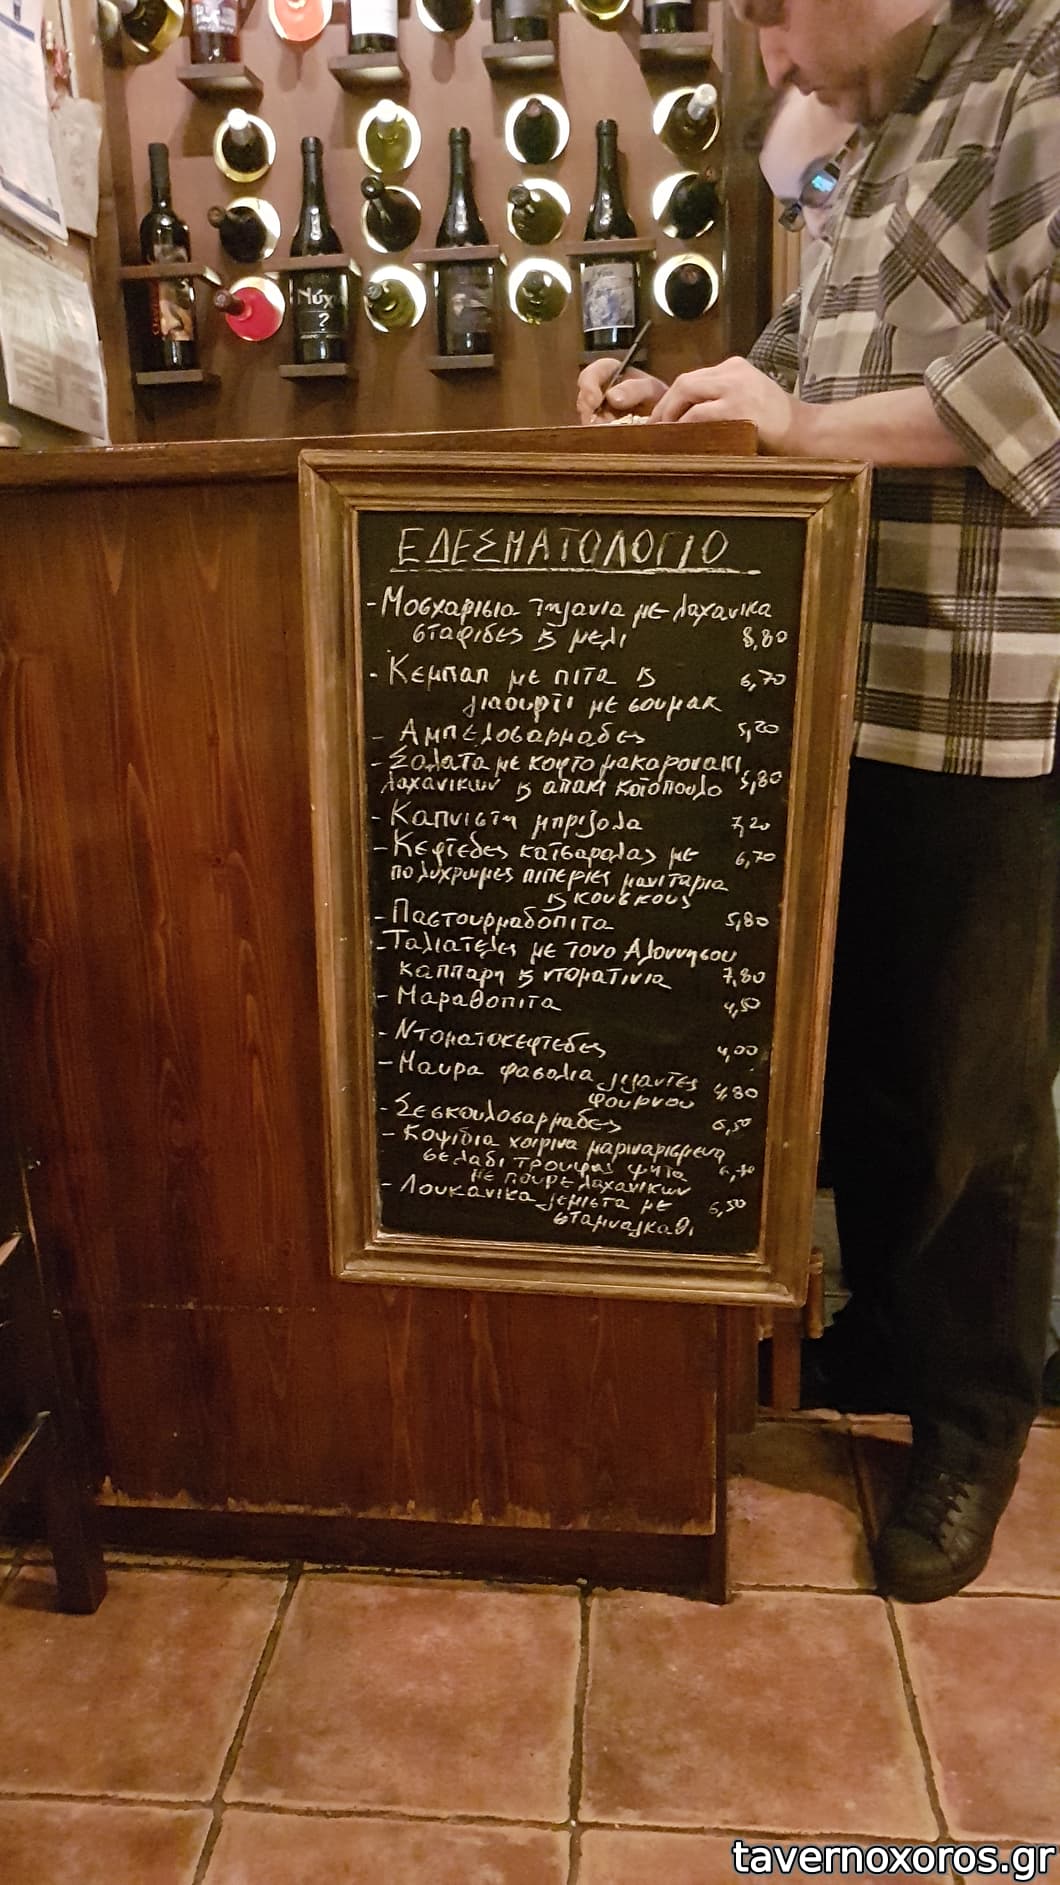 Νύχ
?
ΕΔΕΣΜΑΤΟΛΟΓΙΟ
- Μοσχαρισια τηγανια με λαχανικα
σταφιδες κ μελι 8,80
- Κεμπαπ με πιτα κ 6,70
γιαουρτι με σουμακ
- Αμπελοσαρμαδες 5,20
- Σαλατα με κοφτο μακαρονακι
λαχανικων κ απακι κοτοπουλο 5,80
- Καπνιστη μπριζολα 7,20
- Κεφτεδες κατσαρολας με 6,70
πολυχρωμες πιπεριες μανιταρια
κ κουσκους
- Παστουρμαδοπιτα 5,80
- Ταλιατελες με τονο Αλοννησου
καππαρη κ ντοματινια 7,80
- Μαραθοπιτα 4,50
- Ντοματοκεφτεδες 4,00
- Μαυρα φασολια γιγαντες 4,80
φουρνου
- Σεσκουλοσαρμαδες 6,50
- Κοψιδια χοιρινα μαριναρισμενα
σε λαδι τρουφας ψητα 6,70
με πουρε λαχανικων
- Λουκανικα γεμιστα με 6,50
σταμναγκαθι
tavernoxoros.gr